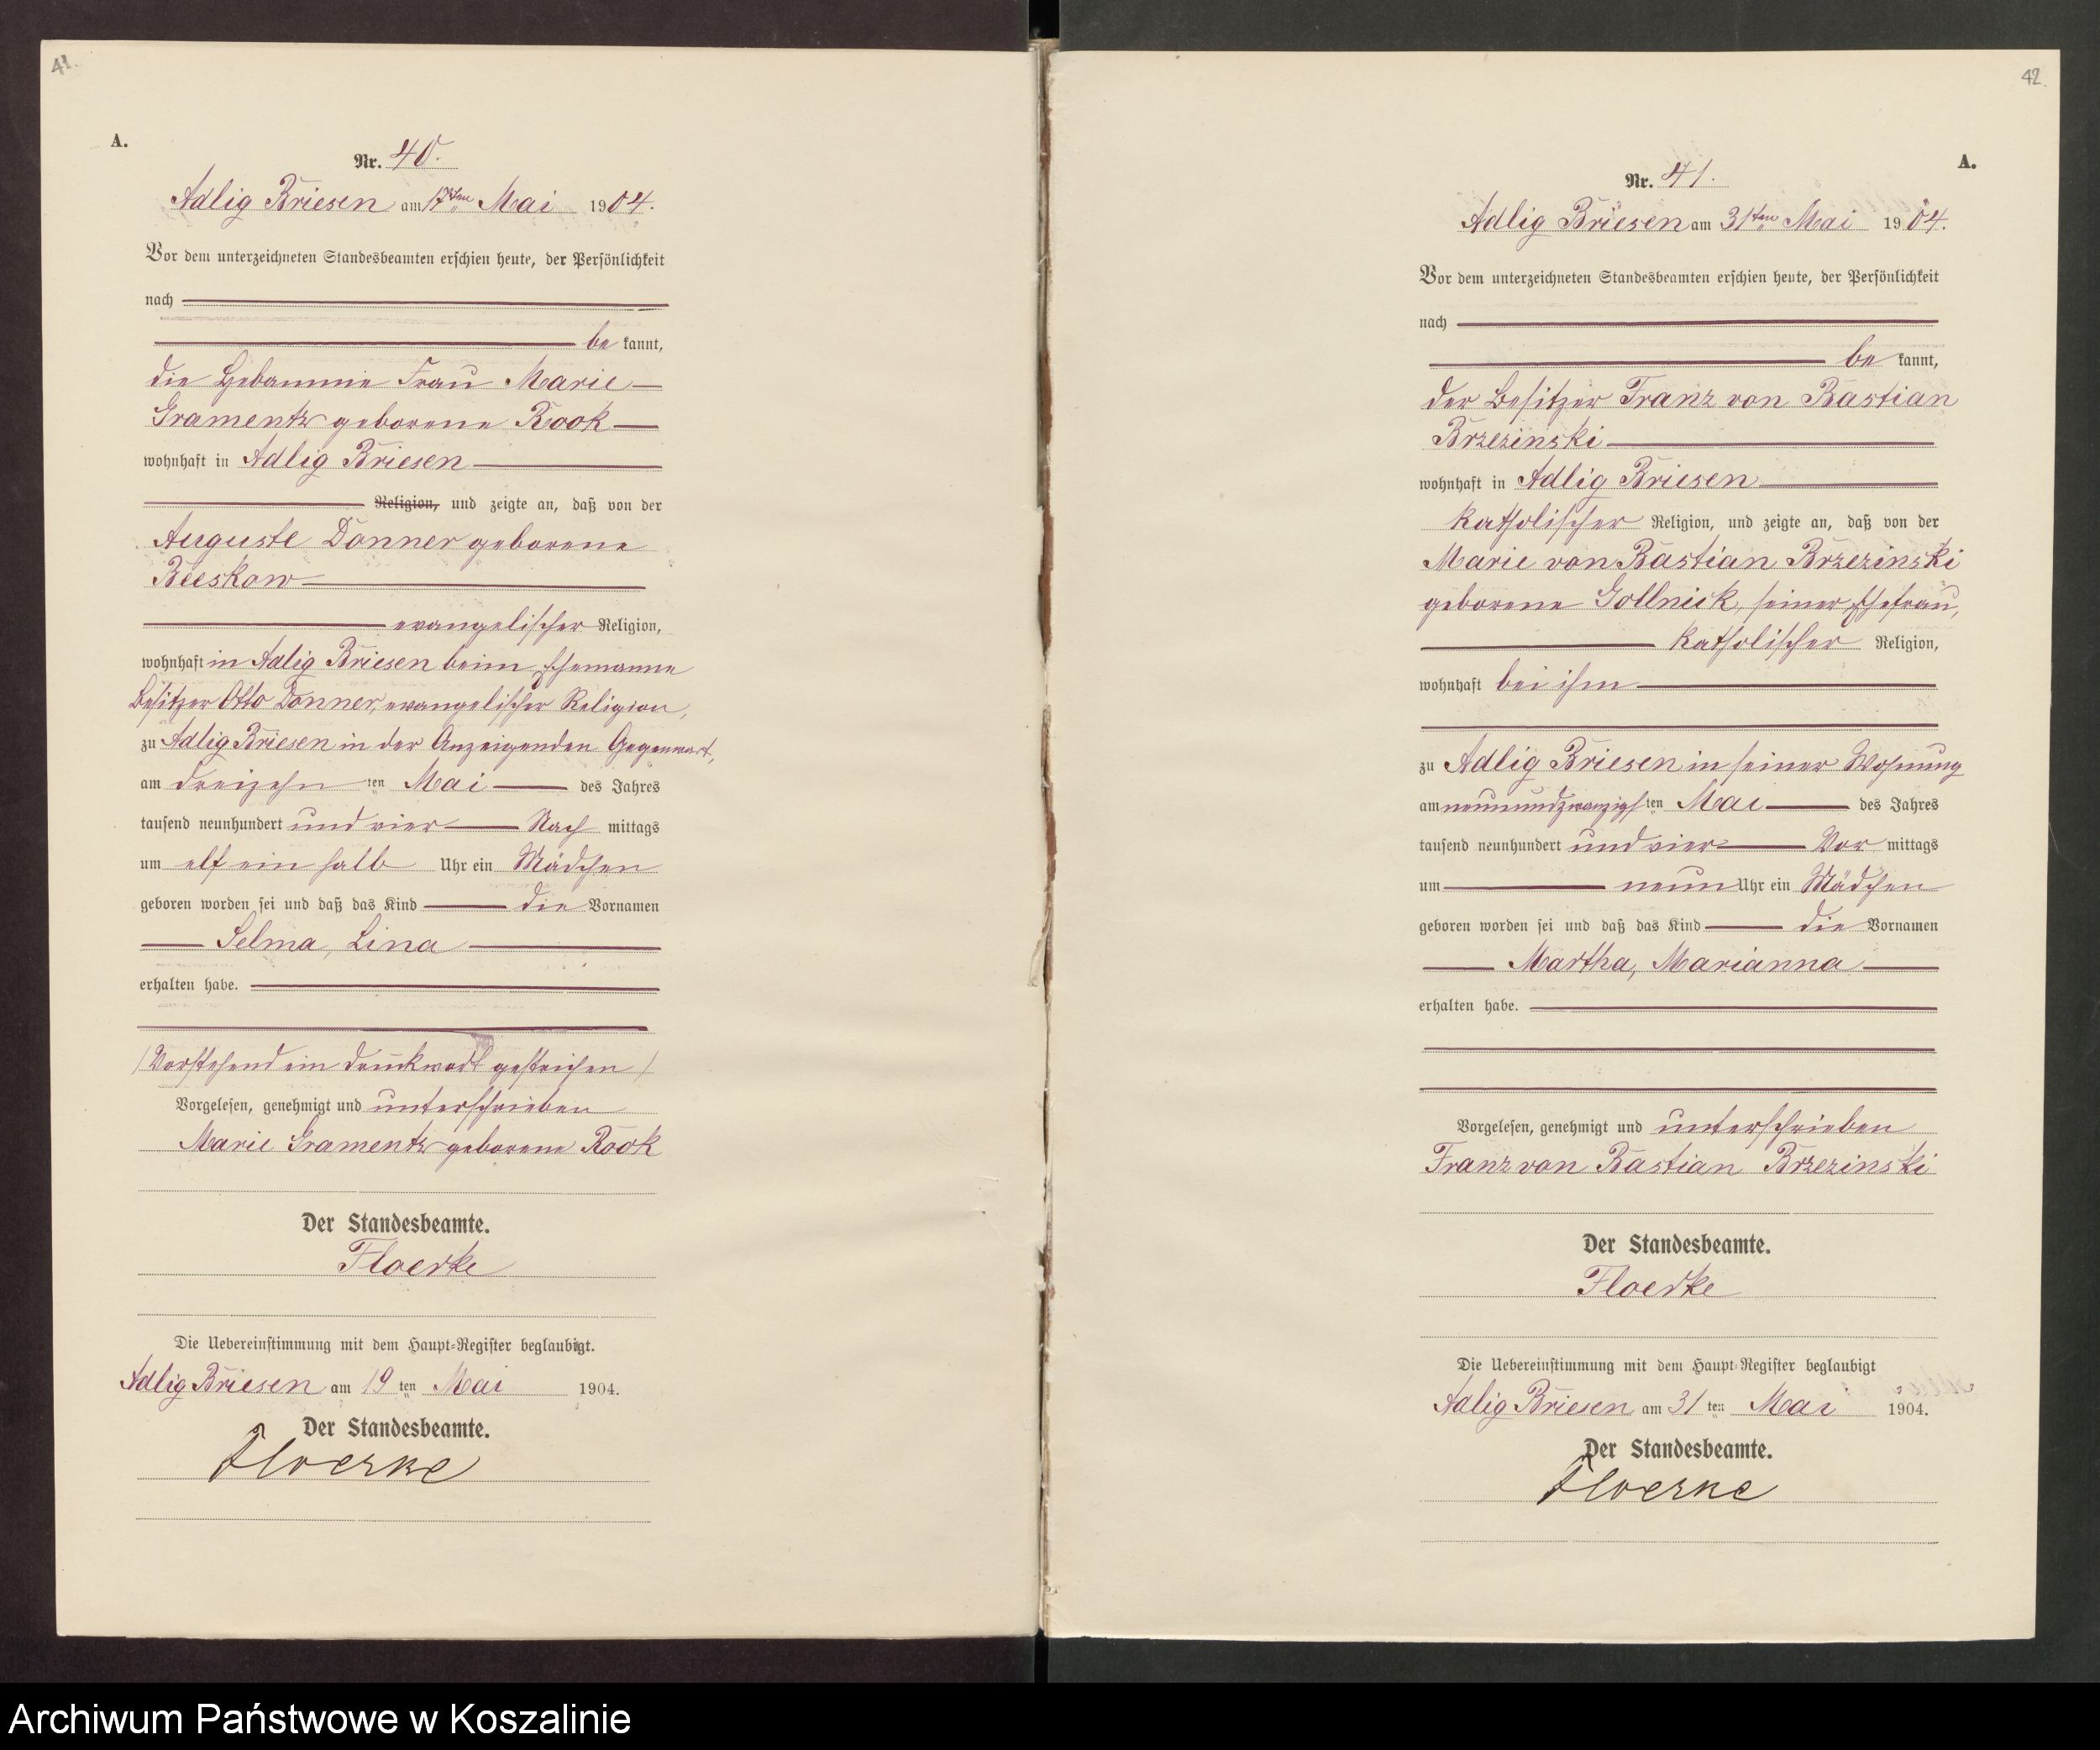 41.
A.
Nr. 40.
Adlig Briesen am 17ten Mai 1904.
Vor dem unterzeichneten Standesbeamten erschien heute, der Persönlichkeit
nach
be kannt,
die Hebamme Frau Marie
Gramentz geborene Rook
wohnhaft in Adlig Briesen
Religion, und zeigte an, daß von der
Auguste Donner geborene
Beeskow
evangelischer Religion,
wohnhaft in Adlig Briesen beim Ehemanne
Besitzer Otto Donner, evangelischer Religion,
zu Adlig Briesen in der Anzeigenden Gegenwart,
am dreizehn ten Mai des Jahres
tausend neunhundert und vier Nach mittags
um elf ein halb Uhr ein Mädchen
geboren worden sei und daß das Kind die Vornamen
Selma, Lina
erhalten habe.
/Vorstehend ein Druckwort gestrichen/
Vorgelesen, genehmigt und unterschrieben
Marie Gramentz geborene Rook
Der Standesbeamte.
Floerke
Die Uebereinstimmung mit dem Haupt-Register beglaubigt.
Adlig Briesen am 19 ten Mai 1904.
Der Standesbeamte.
Floerke
42.
A.
Nr. 41.
Adlig Briesen am 31ten Mai 1904.
Vor dem unterzeichneten Standesbeamten erschien heute, der Persönlichkeit
nach
be kannt,
der Besitzer Franz von Bastian
Brzezinski
wohnhaft in Adlig Briesen
katholischer Religion, und zeigte an, daß von der
Marie von Bastian Brzezinski
geborene Gollnick, seiner Ehefrau,
katholischer Religion,
wohnhaft bei ihm
zu Adlig Briesen in seiner Wohnung
am neunundzwanzigsten Mai des Jahres
tausend neunhundert und vier Vor mittags
um neun Uhr ein Mädchen
geboren worden sei und daß das Kind die Vornamen
Martha, Marianna
erhalten habe.
Vorgelesen, genehmigt und unterschrieben
Franz von Bastian Brzezinski
Der Standesbeamte.
Floerke
Die Uebereinstimmung mit dem Haupt-Register beglaubigt
Adlig Briesen am 31 ten Mai 1904.
Der Standesbeamte.
Floerke
Archiwum Państwowe w Koszalinie